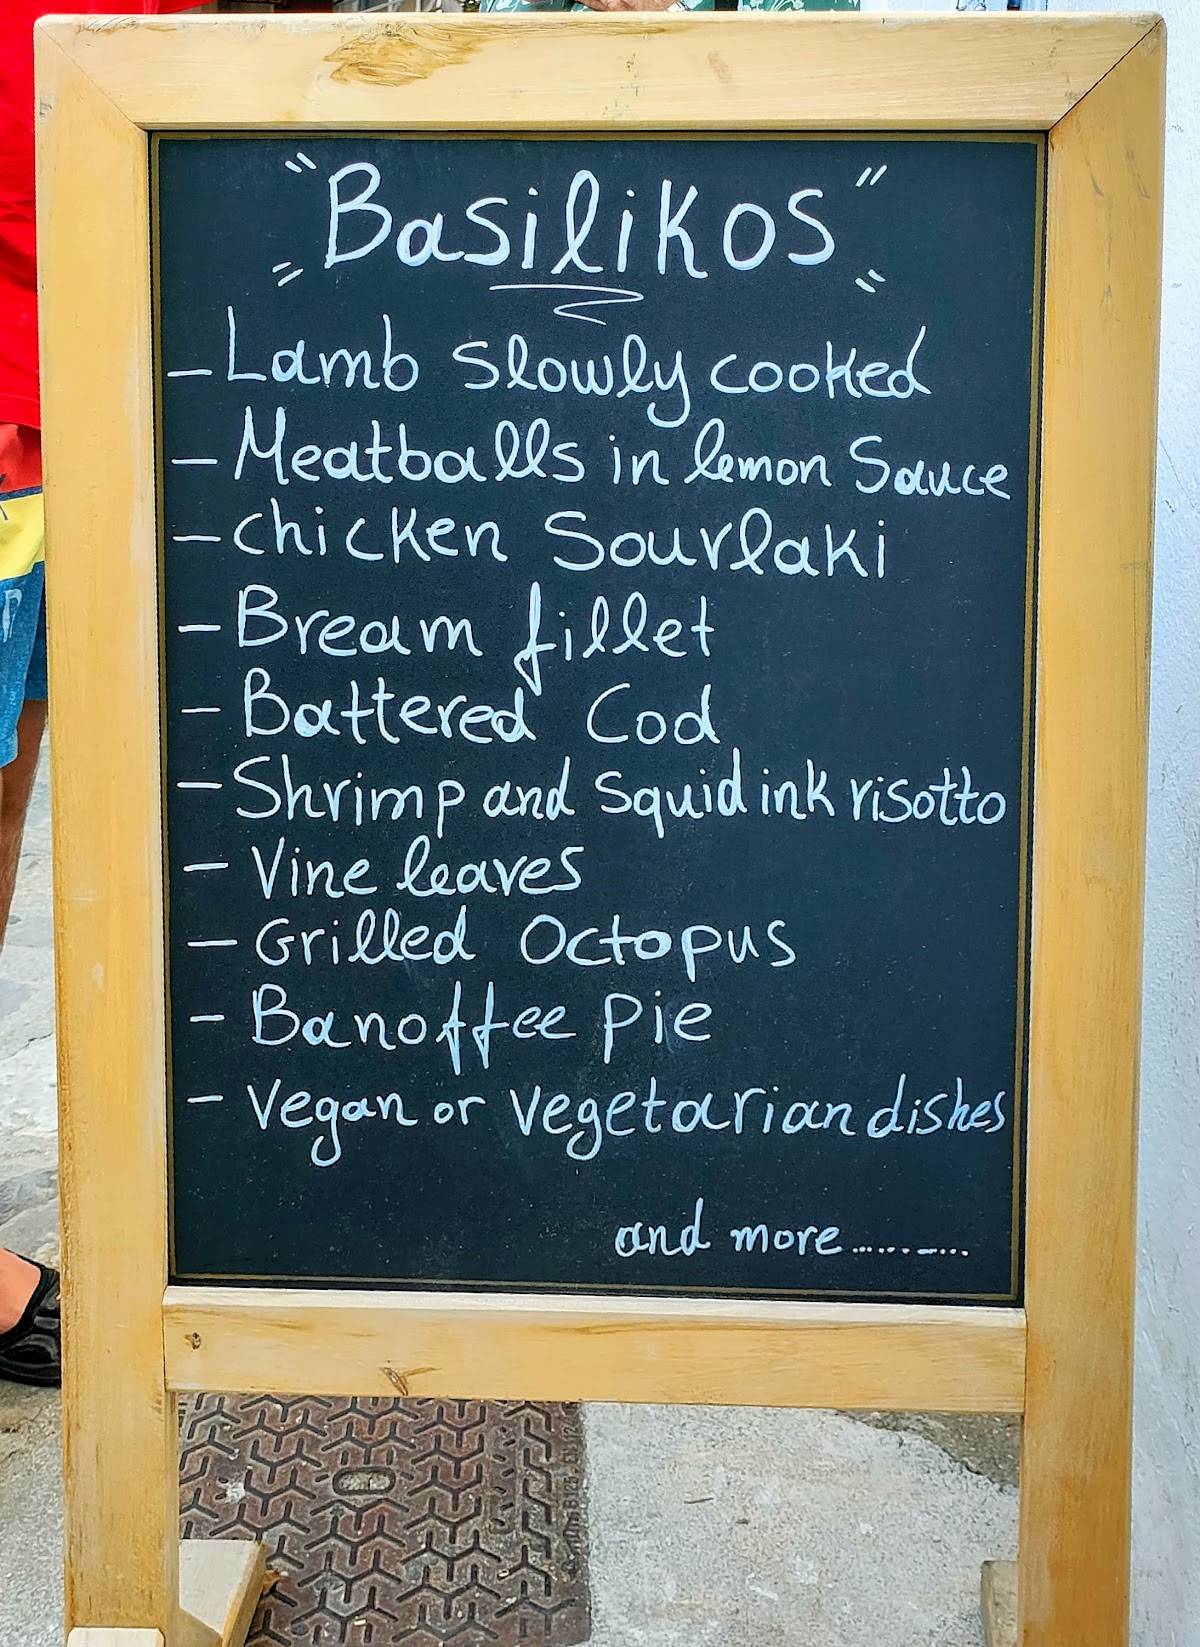 "Basilikos"
- Lamb slowly cooked
- Meatballs in lemon Sauce
- chicken Sourlaki
- Bream fillet
- Battered Cod
- Shrimp and squid ink risotto
- Vine leaves
- Grilled Octopus
- Banoffee pie
- Vegan or vegetarian dishes
and more..........